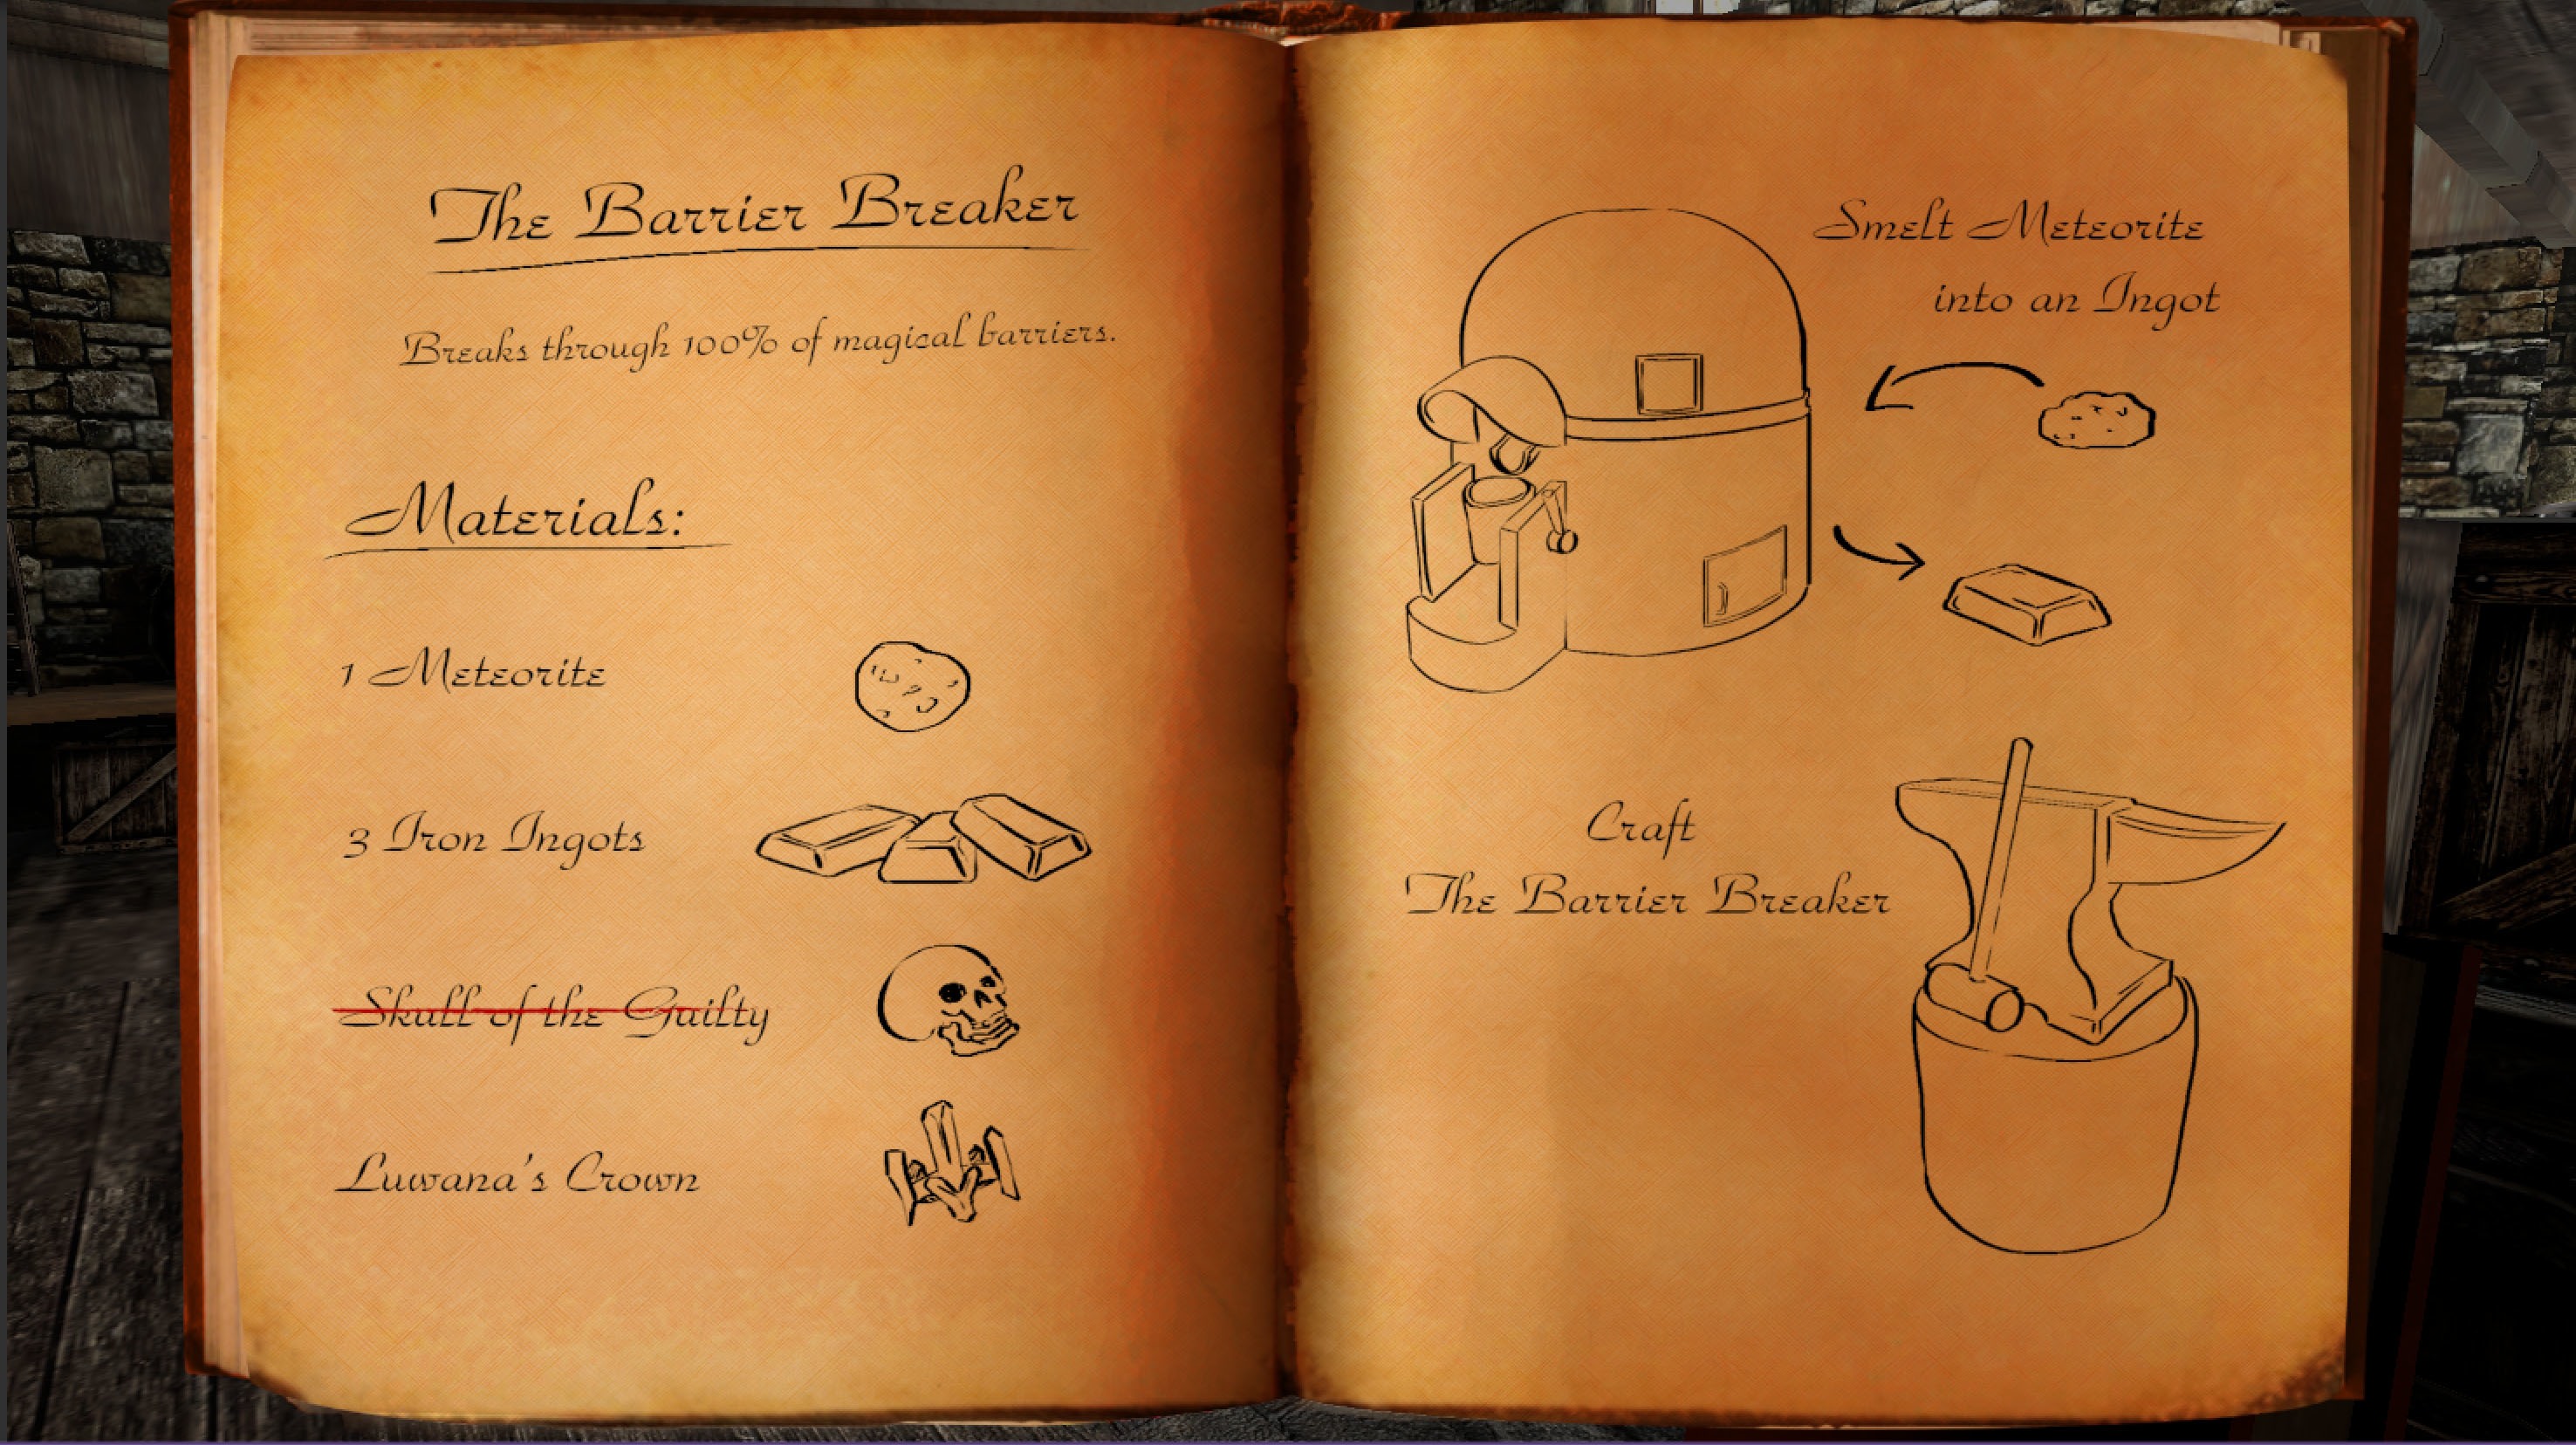 The Barrier Breaker
Breaks through 100% of magical barriers.
Materials:
1 Meteorite
3 Iron Ingots
Skull of the Guilty
Luwana's Crown
Smelt Meteorite
into an Ingot
Craft
The Barrier Breaker